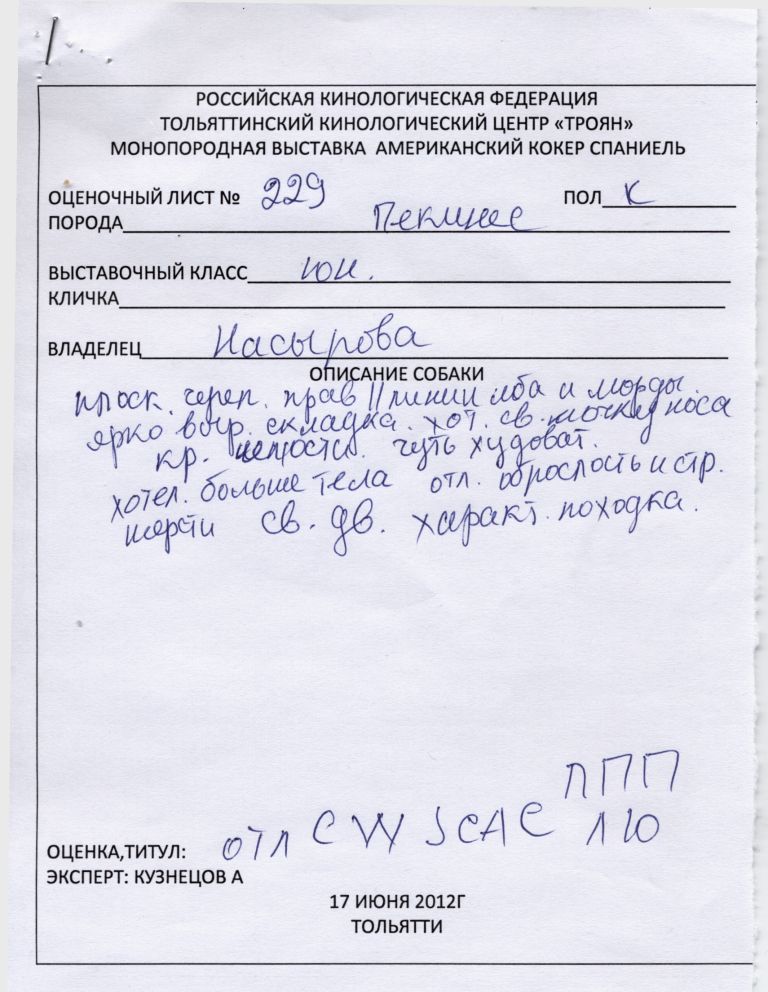 РОССИЙСКАЯ КИНОЛОГИЧЕСКАЯ ФЕДЕРАЦИЯ
ТОЛЬЯТТИНСКИЙ КИНОЛОГИЧЕСКИЙ ЦЕНТР «ТРОЯН»
МОНОПОРОДНАЯ ВЫСТАВКА АМЕРИКАНСКИЙ КОКЕР СПАНИЕЛЬ
ОЦЕНОЧНЫЙ ЛИСТ № 229 ПОЛ К
ПОРОДА Пекинес
ВЫСТАВОЧНЫЙ КЛАСС юн.
КЛИЧКА
ВЛАДЕЛЕЦ Насырова
ОПИСАНИЕ СОБАКИ
плоск. череп. прав || линии лба и морды.
ярко выр. складка. хот. св. мочку носа
кр. челюсти. чуть худоват.
хотел. больше тела отл. оброслость и стр.
шерсти св. дв. характ. походка.
ЛПП
ОЦЕНКА,ТИТУЛ: отл CW JCAC ЛЮ
ЭКСПЕРТ: КУЗНЕЦОВ А
17 ИЮНЯ 2012Г
ТОЛЬЯТТИ